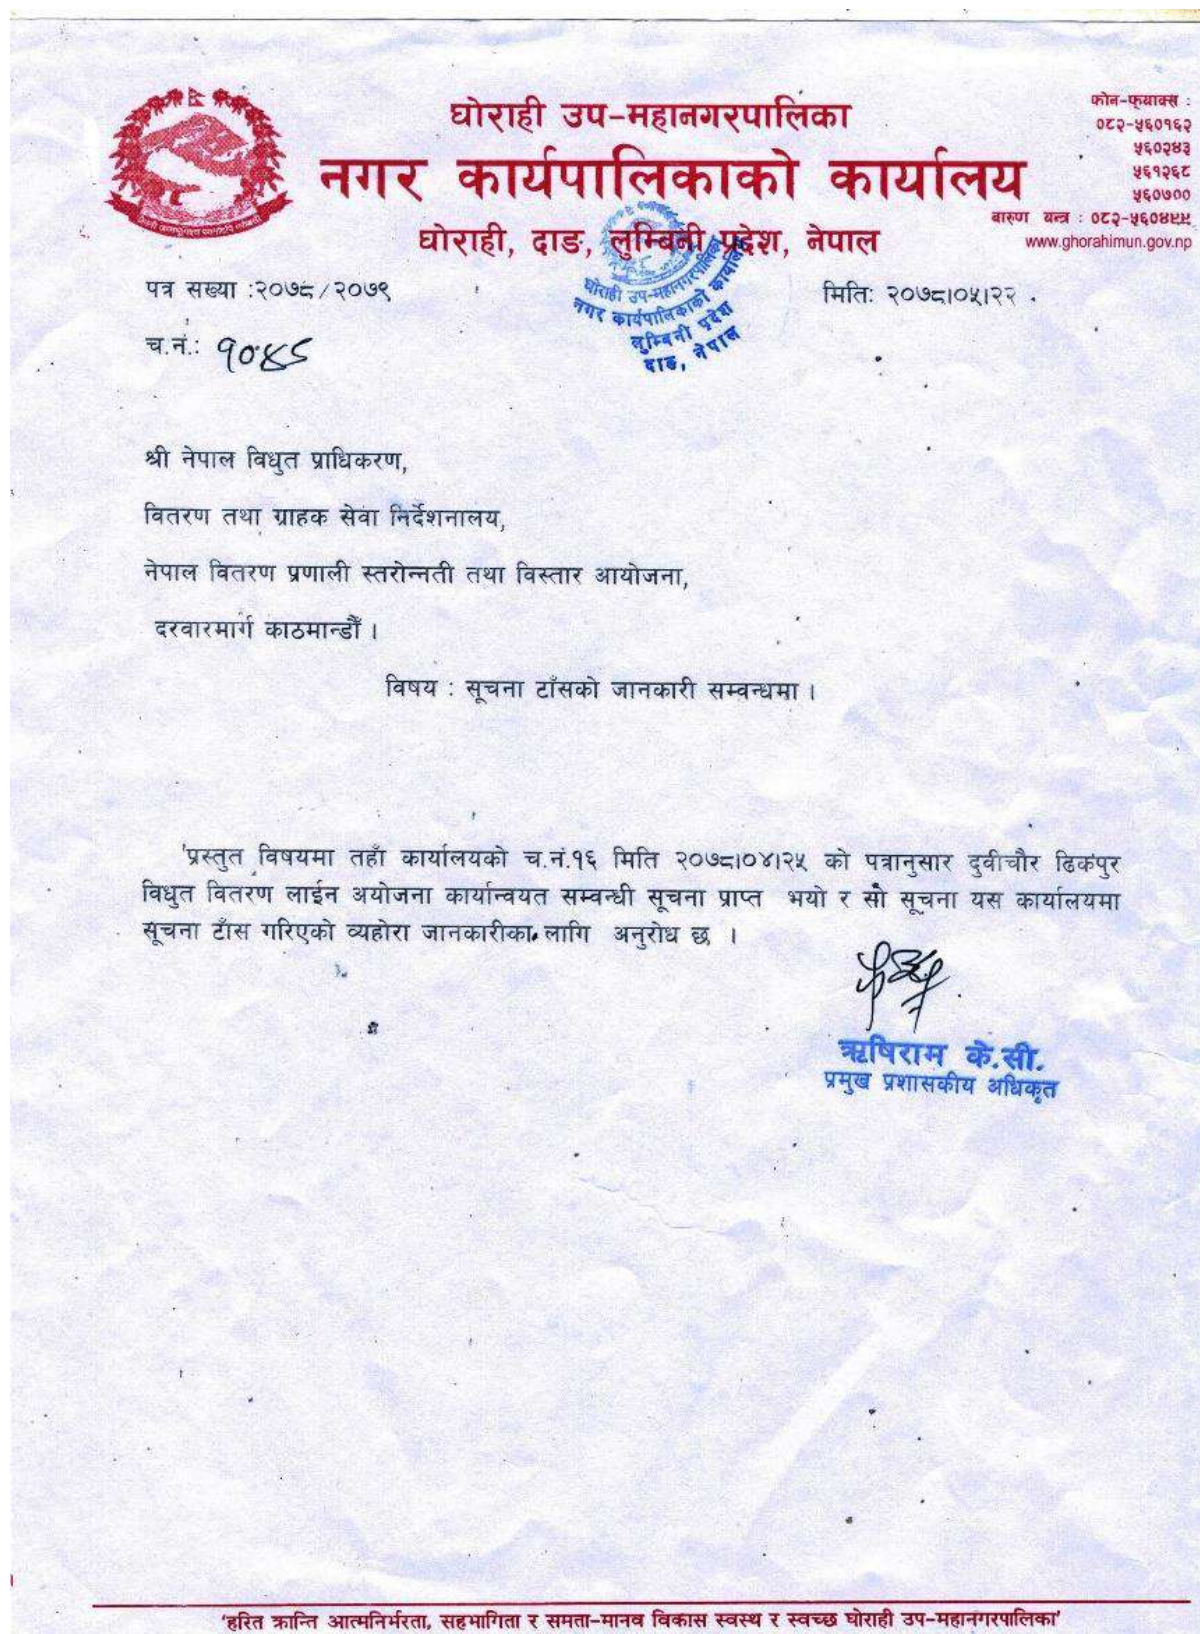 घोराही उप-महानगरपालिका
नगर कार्यपालिकाको कार्यालय
घोराही, दाङ, लुम्बिनी प्रदेश, नेपाल
फोन-फ्याक्स :
०८२-५६०१६२
५६०२४३
५६१२६८
५६०७००
बारुण यन्त्र : ०८२-५६०४५५
www.ghorahimun.gov.np
घोराही उप-महानगरपालिका
नगर कार्यपालिकाको कार्यालय
लुम्बिनी प्रदेश
दाङ, नेपाल
पत्र सख्या :२०७८/२०७९
मिति: २०७८।०५।२२
च.नं.:
श्री नेपाल विधुत प्राधिकरण,
वितरण तथा ग्राहक सेवा निर्देशनालय,
नेपाल वितरण प्रणाली स्तरोन्नती तथा विस्तार आयोजना,
दरवारमार्ग काठमान्डौँ ।
विषय : सूचना टाँसको जानकारी सम्वन्धमा ।
प्रस्तुत विषयमा तहाँ कार्यालयको च.नं.१६ मिति २०७८।०४।२५ को पत्रानुसार दुवीचौर ढिकपुर
विधुत वितरण लाईन अयोजना कार्यान्वयत सम्वन्धी सूचना प्राप्त भयो र सो सूचना यस कार्यालयमा
सूचना टाँस गरिएको व्यहोरा जानकारीका लागि अनुरोध छ ।
ऋषिराम के.सी.
प्रमुख प्रशासकीय अधिकृत
'हरित क्रान्ति आत्मनिर्भरता, सहभागिता र समता-मानव विकास स्वस्थ र स्वच्छ घोराही उप-महानगरपालिका'